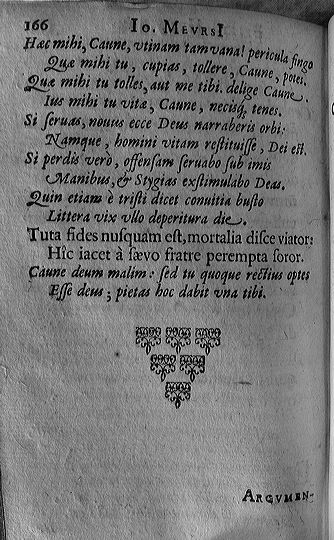 166 IO. MEVRSI
Hæc mihi, Caune, vtinam tam vana! pericula fingo
Quæ mihi tu, cupias, tollere, Caune, potes.
Quæ mihi tu tolles, aut me tibi. delige Caune.
Ius mihi tu vitæ, Caune, necisq; tenes.
Si seruas, nouus ecce Deus narraberis orbi:
Namque, homini vitam restituisse, Dei est.
Si perdis verò, offensam seruabo sub imis
Manibus, & Stygias exstimulabo Deas.
Quin etiam è tristi dicet conuitia busto
Littera vix vllo deperitura die.
Tuta fides nusquam est, mortalia disce viator:
Hîc iacet à sæuo fratre perempta soror.
Caune deum malim: sed tu quoque rectius optes
Esse deus; pietas hoc dabit vna tibi.
ARGVMEN-